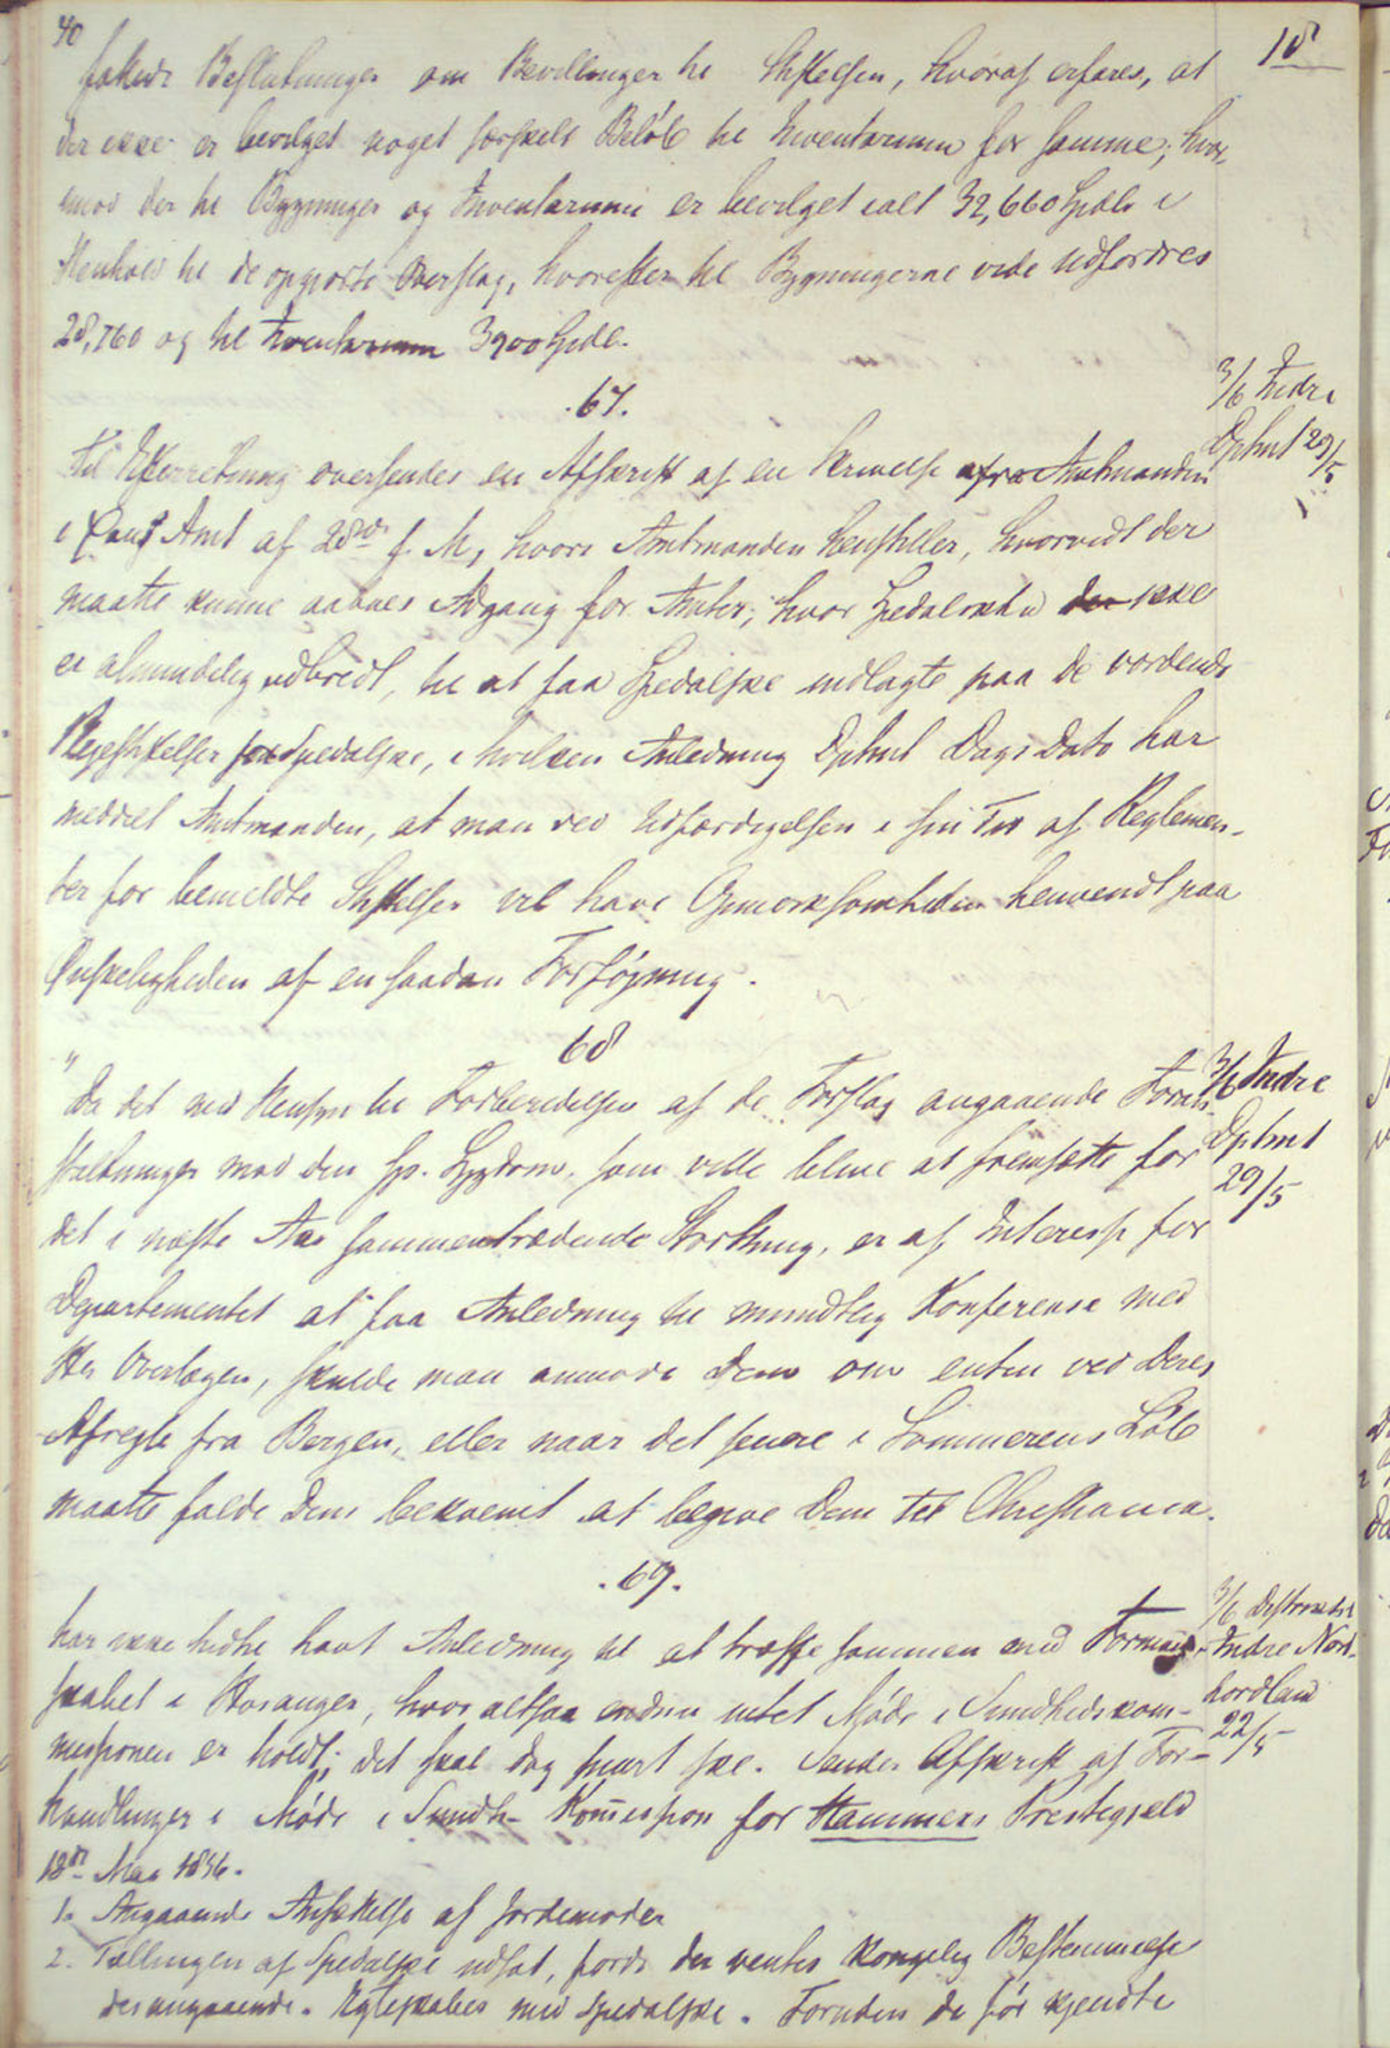 40
18
fattede Beslutninger om Bevillinger til Stiftelsen, hvoraf erfares, at
der ikke er bevilget noget særskilt Beløb til Inventarium for samme; hvor-
imod der til Bygninger og Inventarium er bevilget ialt 32,660 Spdlr i
Henhold til de opgjorte Overslag, hvorefter til Bygningerne vilde udfordres
28,760 og til Inventarium 3900 Spdl.
.67.
3/6 Indre
Dptmt 29/5
Til Efterretning oversendes en Afskrift af en Skrivelse fra Amtmanden
i Amt af 28de f. M, hvori Amtmanden henstiller, hvorvidt der
maatte kunne aabnes Adgang for Amter, hvor Spedalskhed ikke
er almindelig udbredt, til at faa Spedalske indlagte paa de vordende
Plejestiftelser for Spedalske, i hvilken Anledning Dptmt Dags Dato har
meddelt Amtmanden, at man ved Udfærdigelsen i sin Tid af Reglemen-
ter for bemeldte Stiftelser vil have Opmærksomheden henvendt paa
Ønskeligheden af en saadan Forføjning.
68
3/6 Indre
Dptmt
29/5
"Da det med Hensyn til Forberedelsen af de Forslag angaaende Foran-
staltninger mod den sp. Sygdom, som ville blive at fremsætte for
det i næste Aar sammentrædende Storthing, er af Interesse for
Departementet at faa Anledning til mundtlig Konference med
Hr Overlægen, skulde man anmode Dem om enten ved Deres
Afrejse fra Bergen, eller naar det senere i Sommerens Løb
maatte falde Dem bekvemt at begive Dem til Christiania.
.69.
3/6 Distriktsl
Indre Nord-
hordland
22/5
har ikke hidtil havt Anledning til at træffe sammen med Formand-
skabet i Hosanger, hvor altsaa endnu intet Møde i Sundhedskom-
missionen er holdt; det skal dog snart ske. Sender Afskrift af For-
handlinger i Møde i Sundh- Komission for Hammers Prestegjeld
18de Mai 1856.
1. Angaaende Ansættelse af Jordemoder
2. Tællingen af Spedalske udsat, fordi der ventes kongelig Bestemmelse
desangaaende. Egteskaber med Spedalske. Foruden de før kjendte